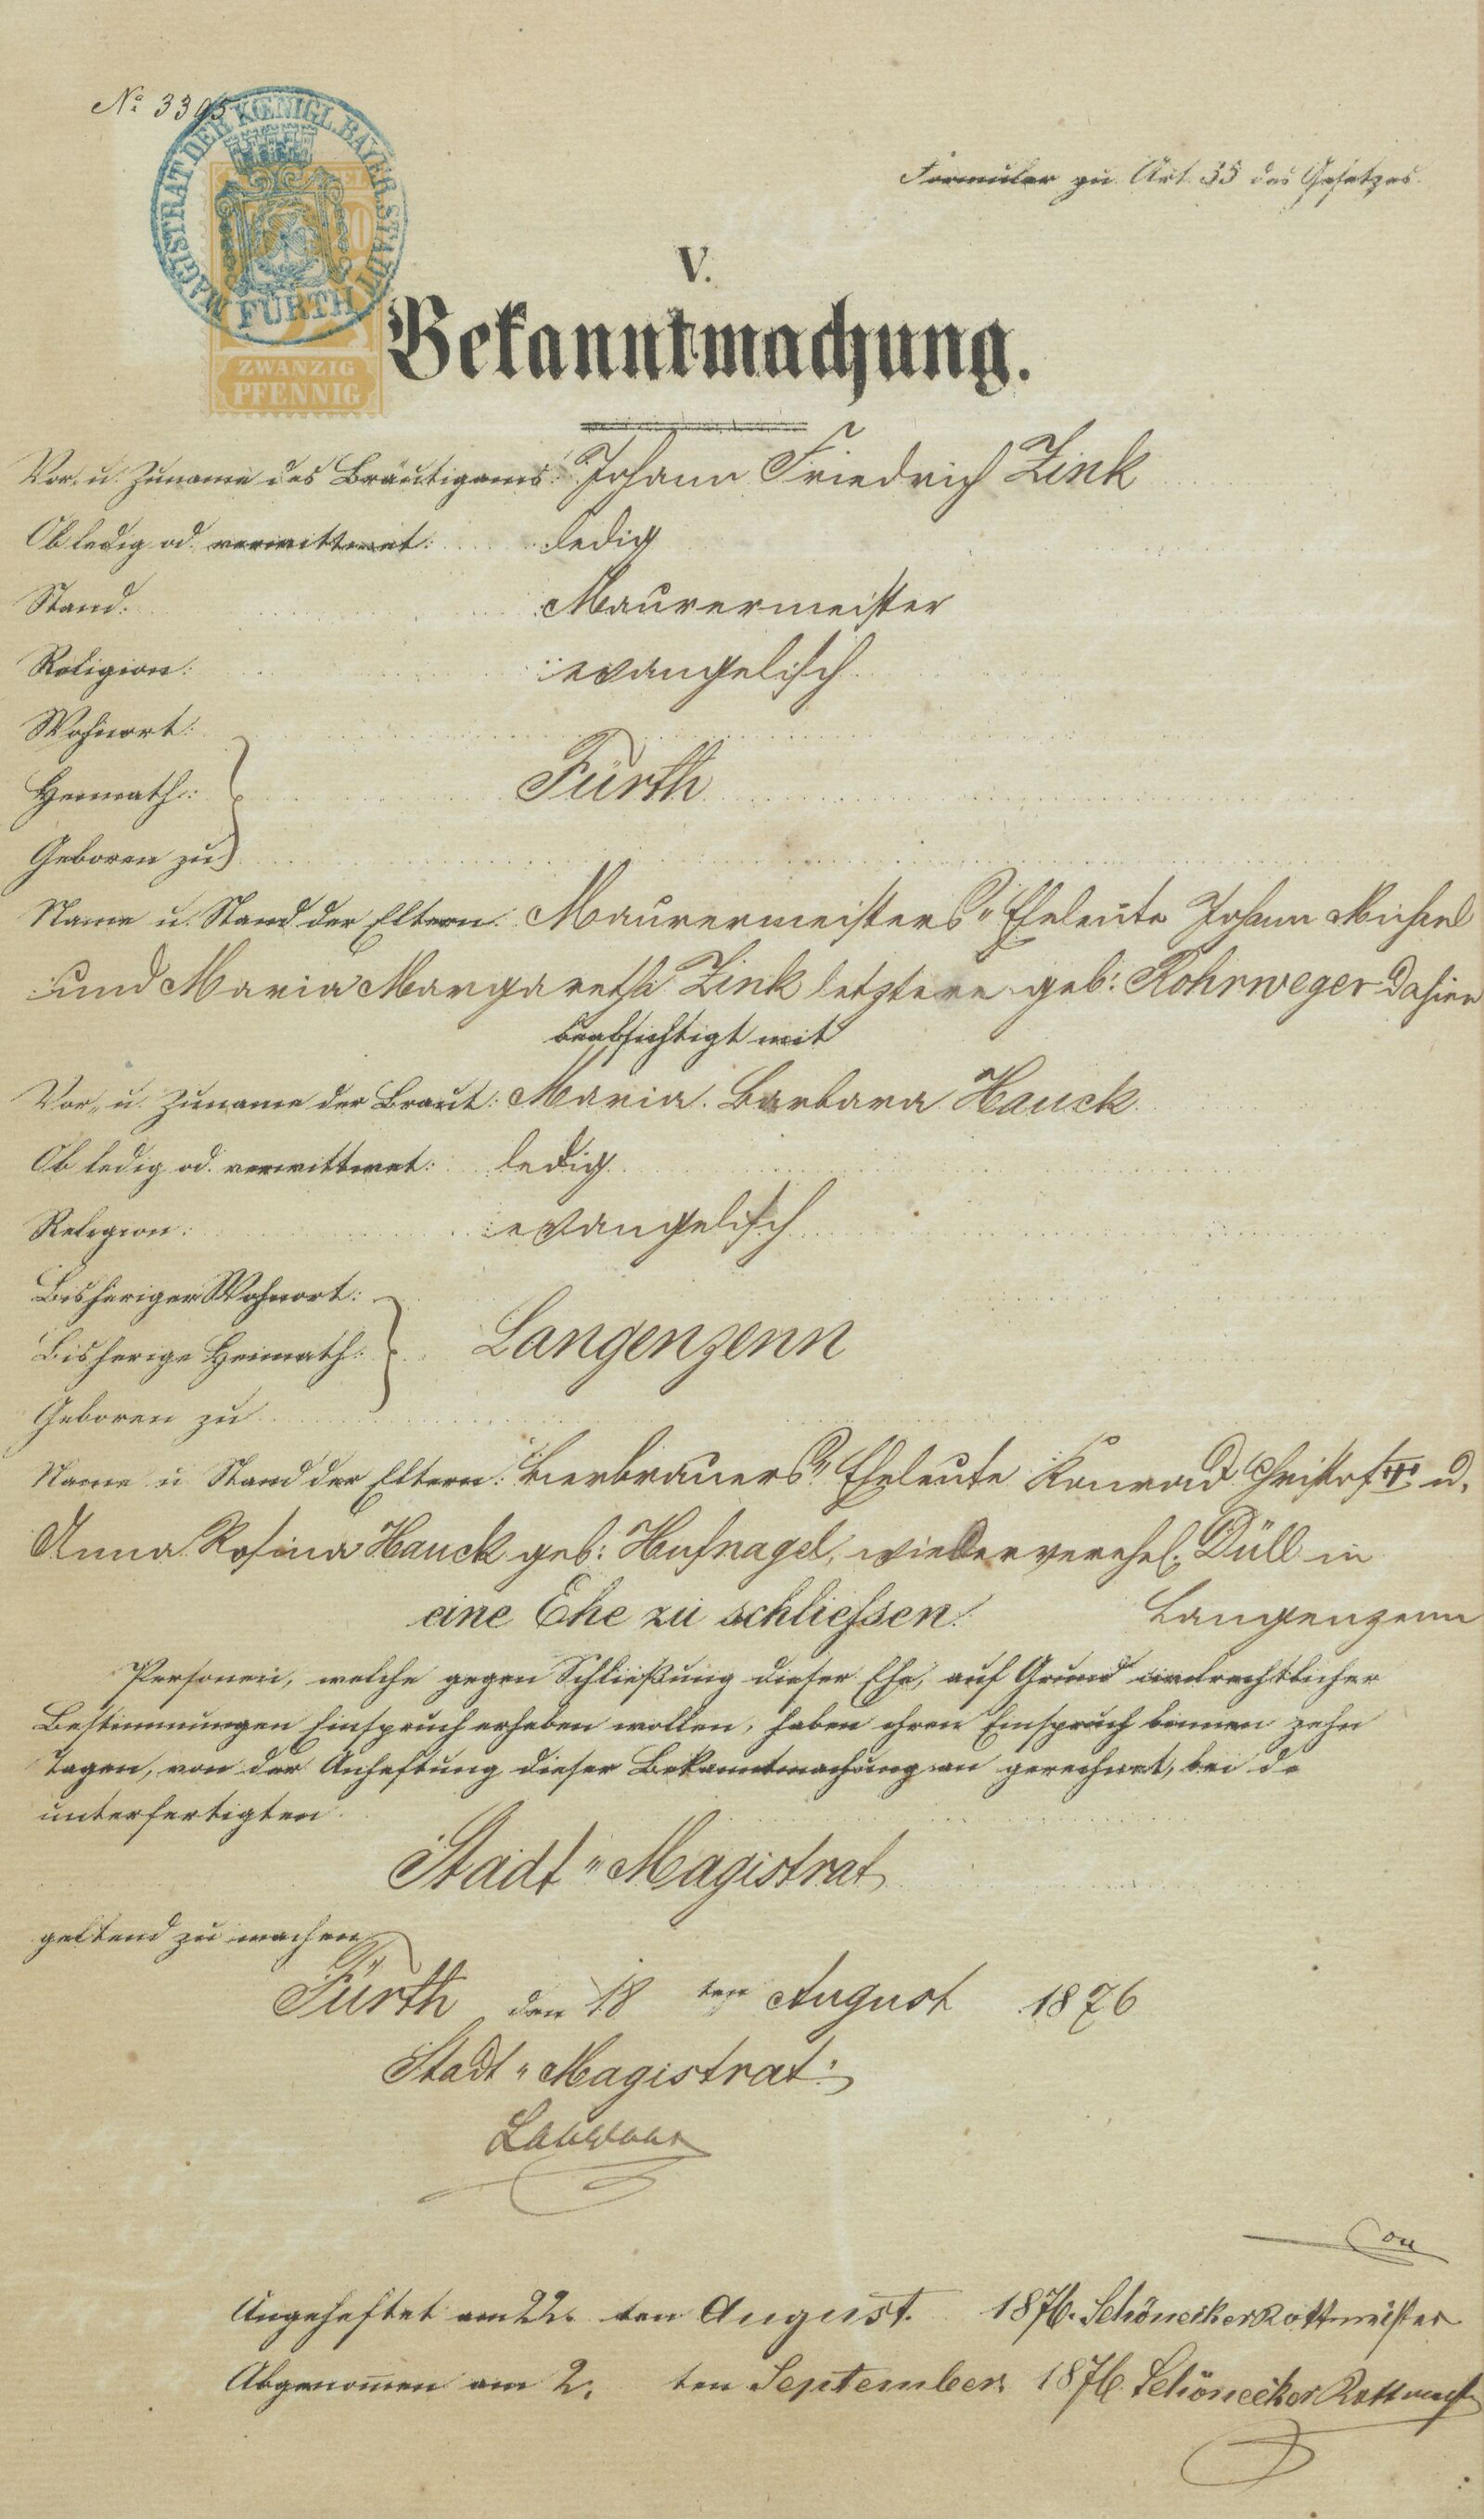 No. 3395
MAGISTRAT DER KŒNIGL. BAYER. STADT
FÜRTH
ZWANZIG
PFENNIG
Formular zu Art. 35 des Gesetzes.
V.
Bekanntmachung.
Vor- u. Zuname des Bräutigams: Johann Friedrich Zink
Ob ledig od. verwittwet: ledig
Stand: Maurermeister
Religion: evangelisch
Wohnort:
Heimath: Fürth
Geboren zu
Name u. Stand der Eltern: Maurermeisters-Eheleute Johann Michael
und Maria Margaretha Zink letztere geb: Rohrweger dahier
beabsichtigt mit
Vor- u. Zuname der Braut: Maria Barbara Hauck
Ob ledig od. verwittwet: ledig
Religion: evangelisch
Bisheriger Wohnort:
Bisherige Heimath: Langenzenn
Geboren zu
Name u. Stand der Eltern: Bierbrauers-Eheleute Konrad Christof † u.
Anna Rosina Hauck geb: Hufnagel, wiederverehel. Düll in
eine Ehe zu schliessen. Langenzenn
Personen, welche gegen Schließung dieser Ehe, auf Grund civilrechtlicher
Bestimmungen Einspruch erheben wollen, haben ihren Einspruch binnen zehn
Tagen, von der Anheftung dieser Bekanntmachung an gerechnet, bei de
unterfertigten
Stadt-Magistrat
geltend zu machen
Fürth den 18 ten August 1876
Stadt-Magistrat:
Angeheftet am 22. ten August. 1876. Schönecker Rottmeister
Abgenommen am 2. ten September 1876 Schönecker Rottmeist